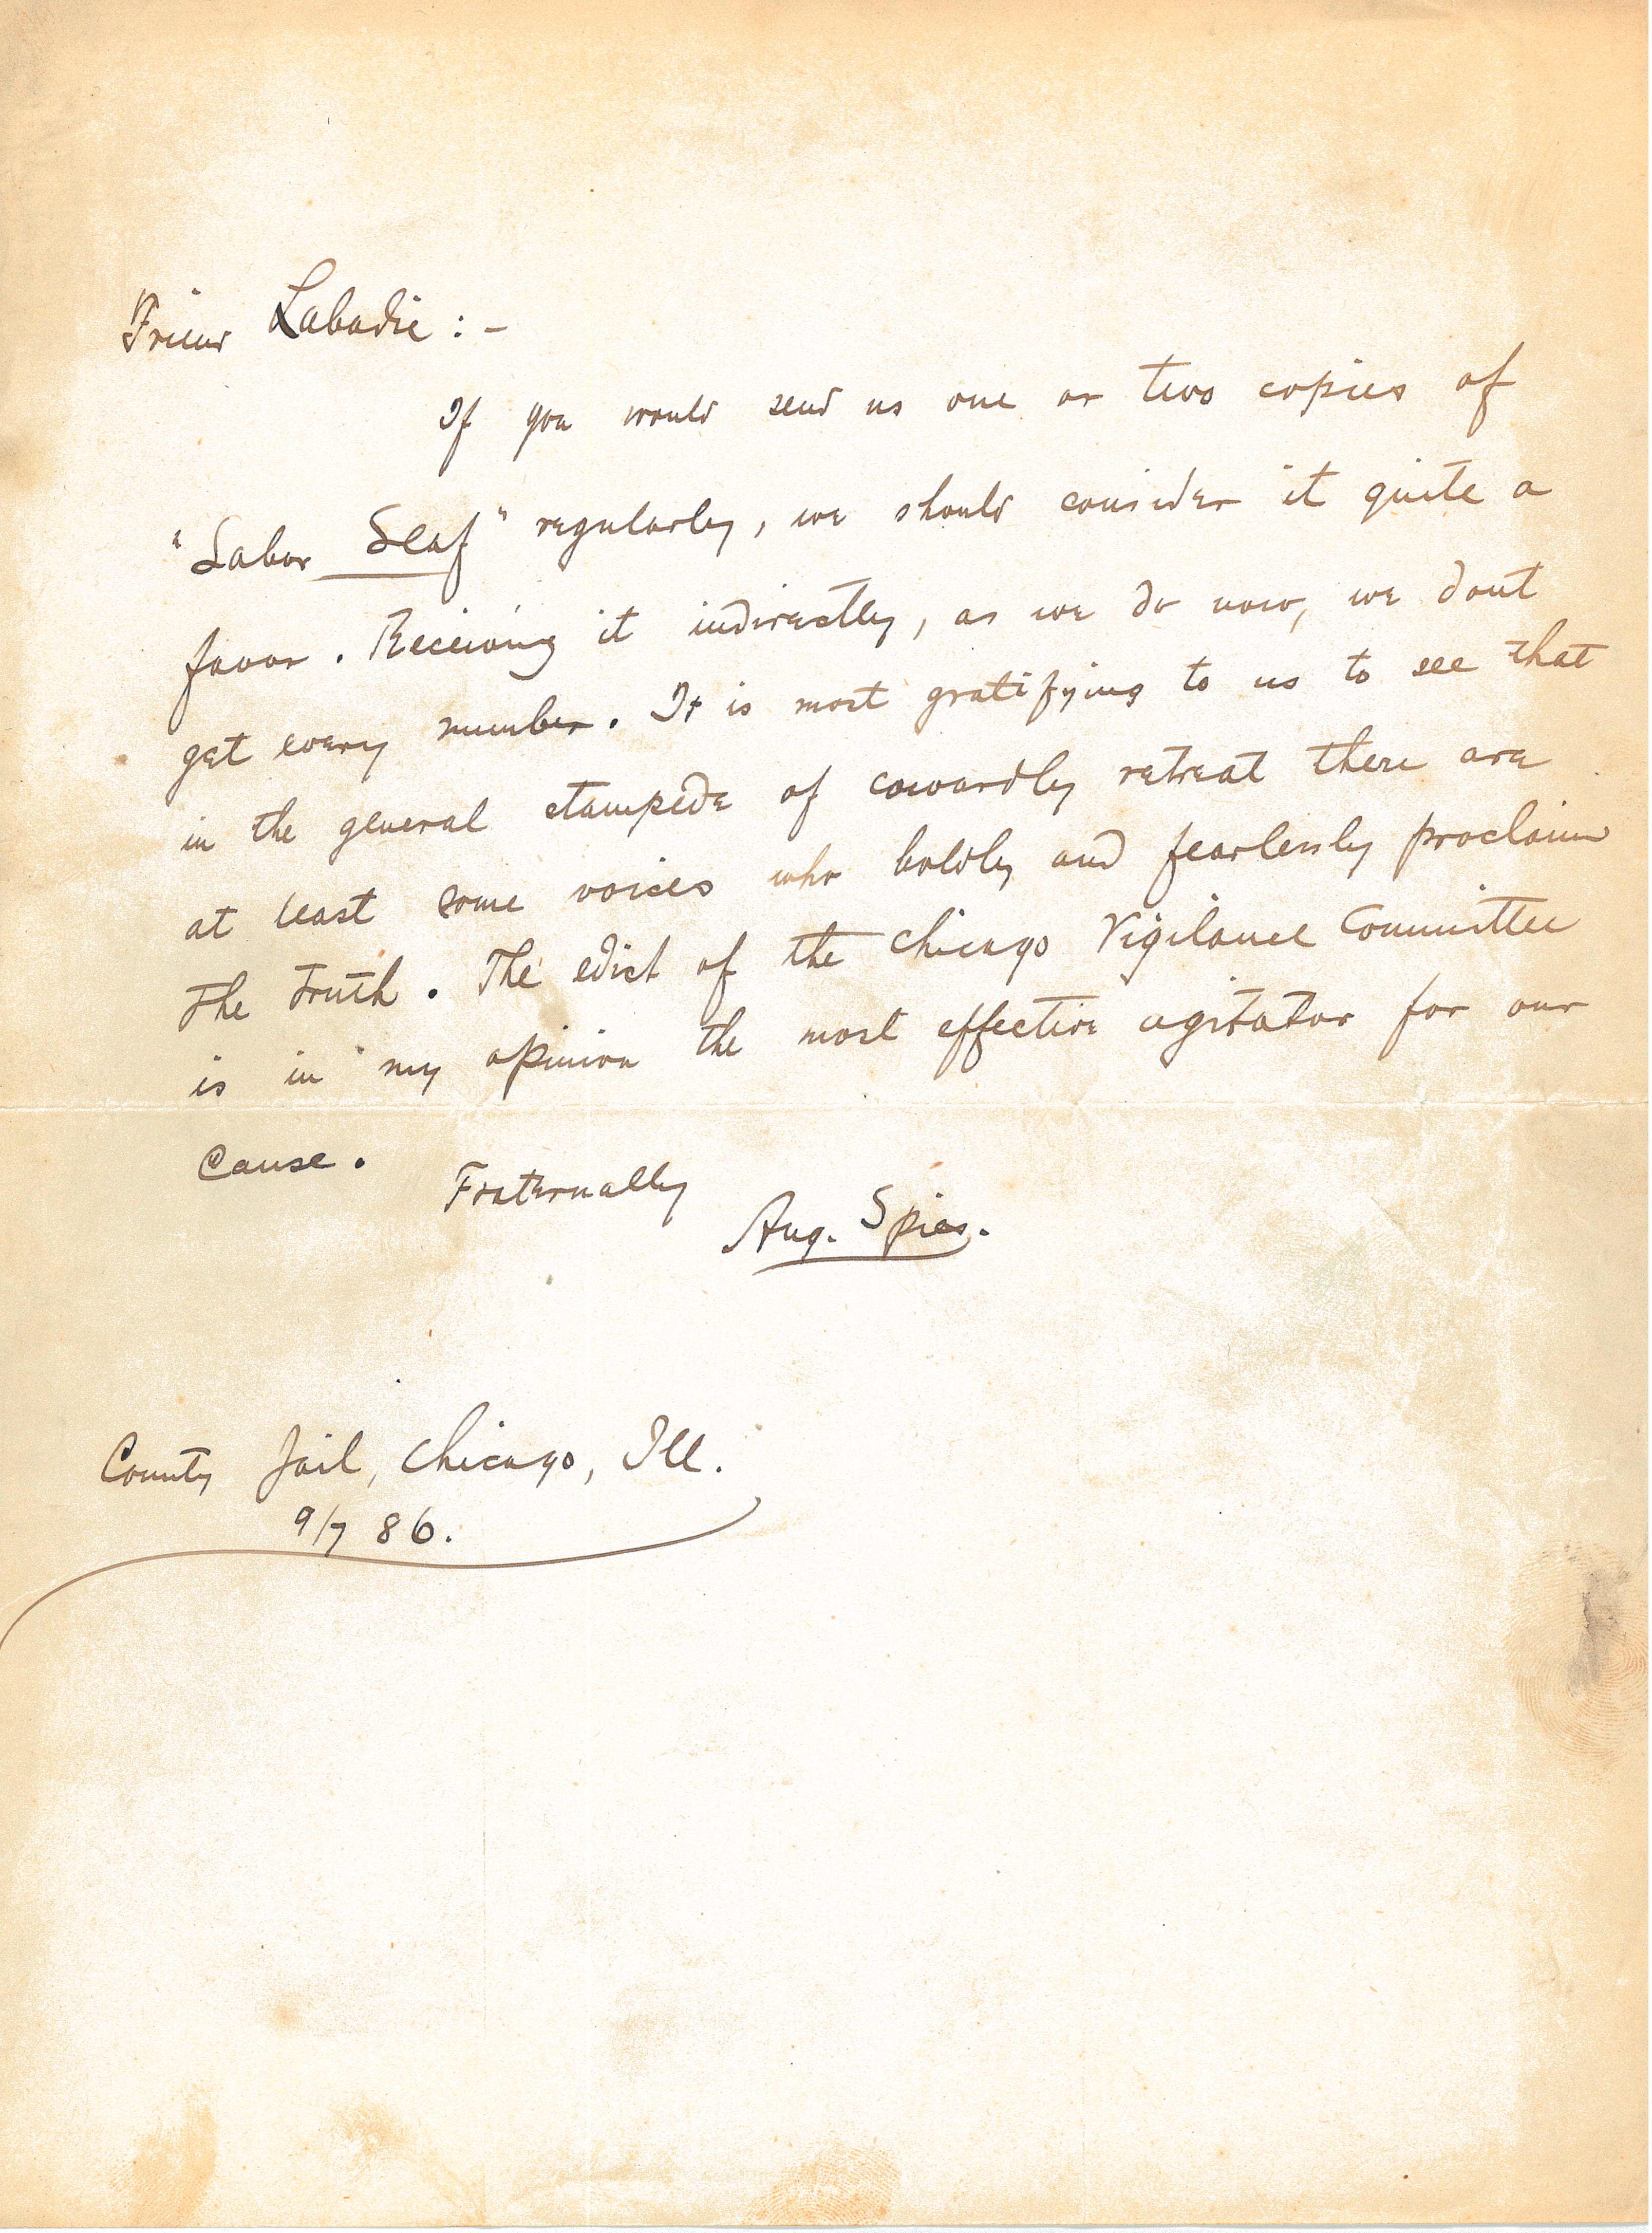 Friend Labadie : -
If you would send us one or two copies of
"Labor Leaf" regularly, we should consider it quite a
favor. Receiving it indirectly, as we do now, we dont
get every number. It is most gratifying to us to see that
in the general stampede of cowardly retreat there are
at least some voices who boldly and fearlessly proclaim
the truth. The edict of the Chicago Vigilance Committee
is in my opinion the most effective agitator for our
Cause.
Fraternally
Aug. Spies.
County Jail, Chicago, Ill.
9/7 86.